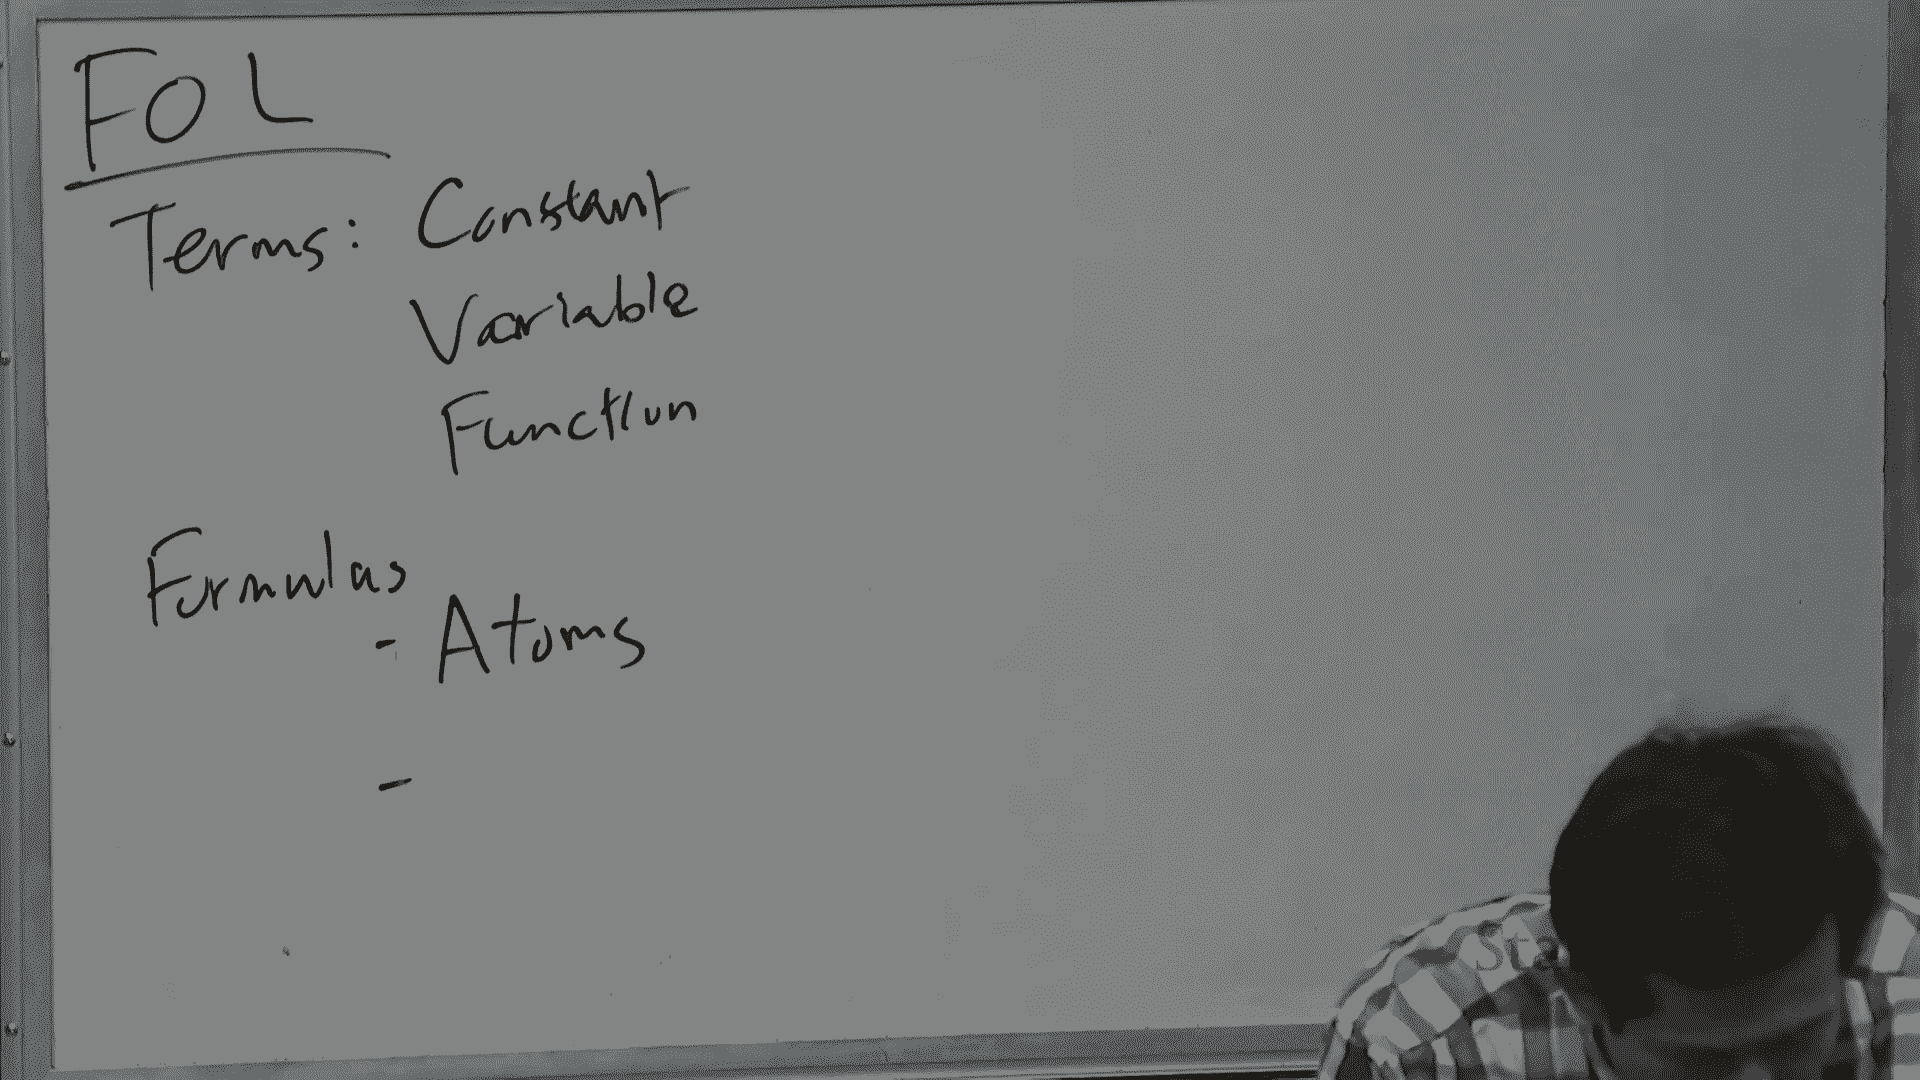 FOL
Terms: Constant
Variable
Function
Formulas
- Atoms
-